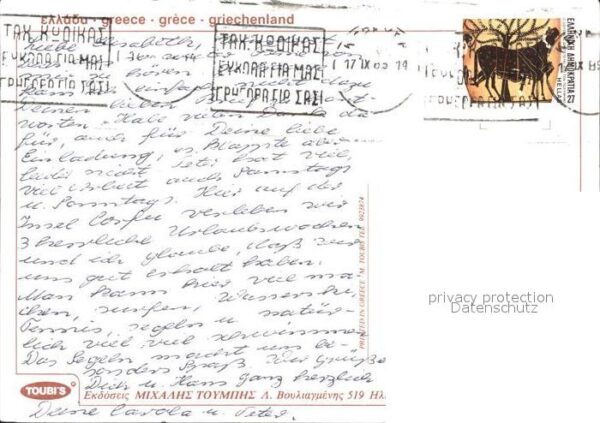 ελλάδα · greece · grèce · griechenland
ΤΑΧ. ΚΩΔΙΚΑΣ
ΕΥΚΟΛΑ ΓΙΑ ΜΑΣ
ΓΡΗΓΟΡΑ ΓΙΑ ΣΑΣ!
ΤΑΧ. ΚΩΔΙΚΑΣ
ΕΥΚΟΛΑ ΓΙΑ ΜΑΣ
ΓΡΗΓΟΡΑ ΓΙΑ ΣΑΣ!
17 IX
ΕΛΛΗΝΙΚΗ ΔΗΜΟΚΡΑΤΙΑ 27
HELLAS
Liebe Elisabeth,
zu hören
Deinen lieben Brief
worten. Habe vielen Dank da
für, auch für Deine liebe
Einladung, es klappte aber
leider nicht. Peter hat viel,
viel Arbeit auch Samstags
u. Sonntags. Hier auf der
Insel Corfu verleben wir
3 herrliche Urlaubswochen
und ich glaube, daß wir
uns gut erholt haben.
Man kann hier viel ma
chen, surfen, Wasserski
Tennis, segeln u. natür-
lich viel viel schwimmen
Das Segeln macht uns be-
sonders Spaß. Wir grüßen
Dich u. Hans ganz herzlich
Deine Carola u. Peter.
PRINTED IN GREECE / M. TOUBIS TEL. 9923874
privacy protection
Datenschutz
TOUBI'S
Εκδόσεις ΜΙΧΑΛΗΣ ΤΟΥΜΠΗΣ Λ. Βουλιαγμένης 519 Ηλ.